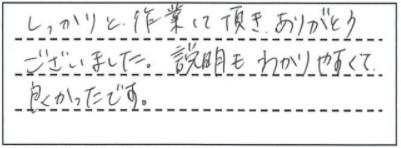 しっかりと、作業して頂き、ありがとう
ございました。説明も わかりやすくて
良かったです。